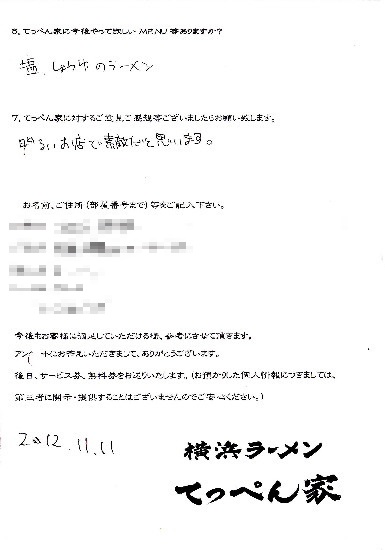 6. てっぺん家に今後やって欲しい MENU 等ありますか？
塩、しょうゆのラーメン
7. てっぺん家に対するご意見、ご感想等ございましたらお願い致します。
明るいお店で素敵だと思います。
お名前、ご住所（部屋番号まで）等をご記入下さい。
今後もお客様に満足していただける様、参考にさせて頂きます。
アンケートにお答えいただきまして、ありがとうございます。
後日、サービス券、無料券をお送りいたします。（お預かりした個人情報につきましては、
第三者に開示・提供することはございませんのでご安心ください。）
2012.11.11
横浜ラーメン
てっぺん家